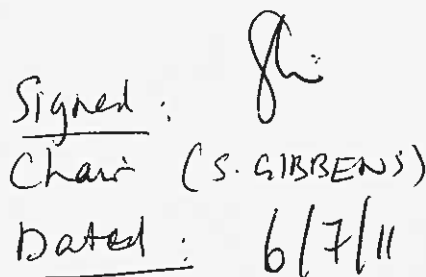 Signed :
Chair (S. GIBBENS)
Dated : 6/7/11